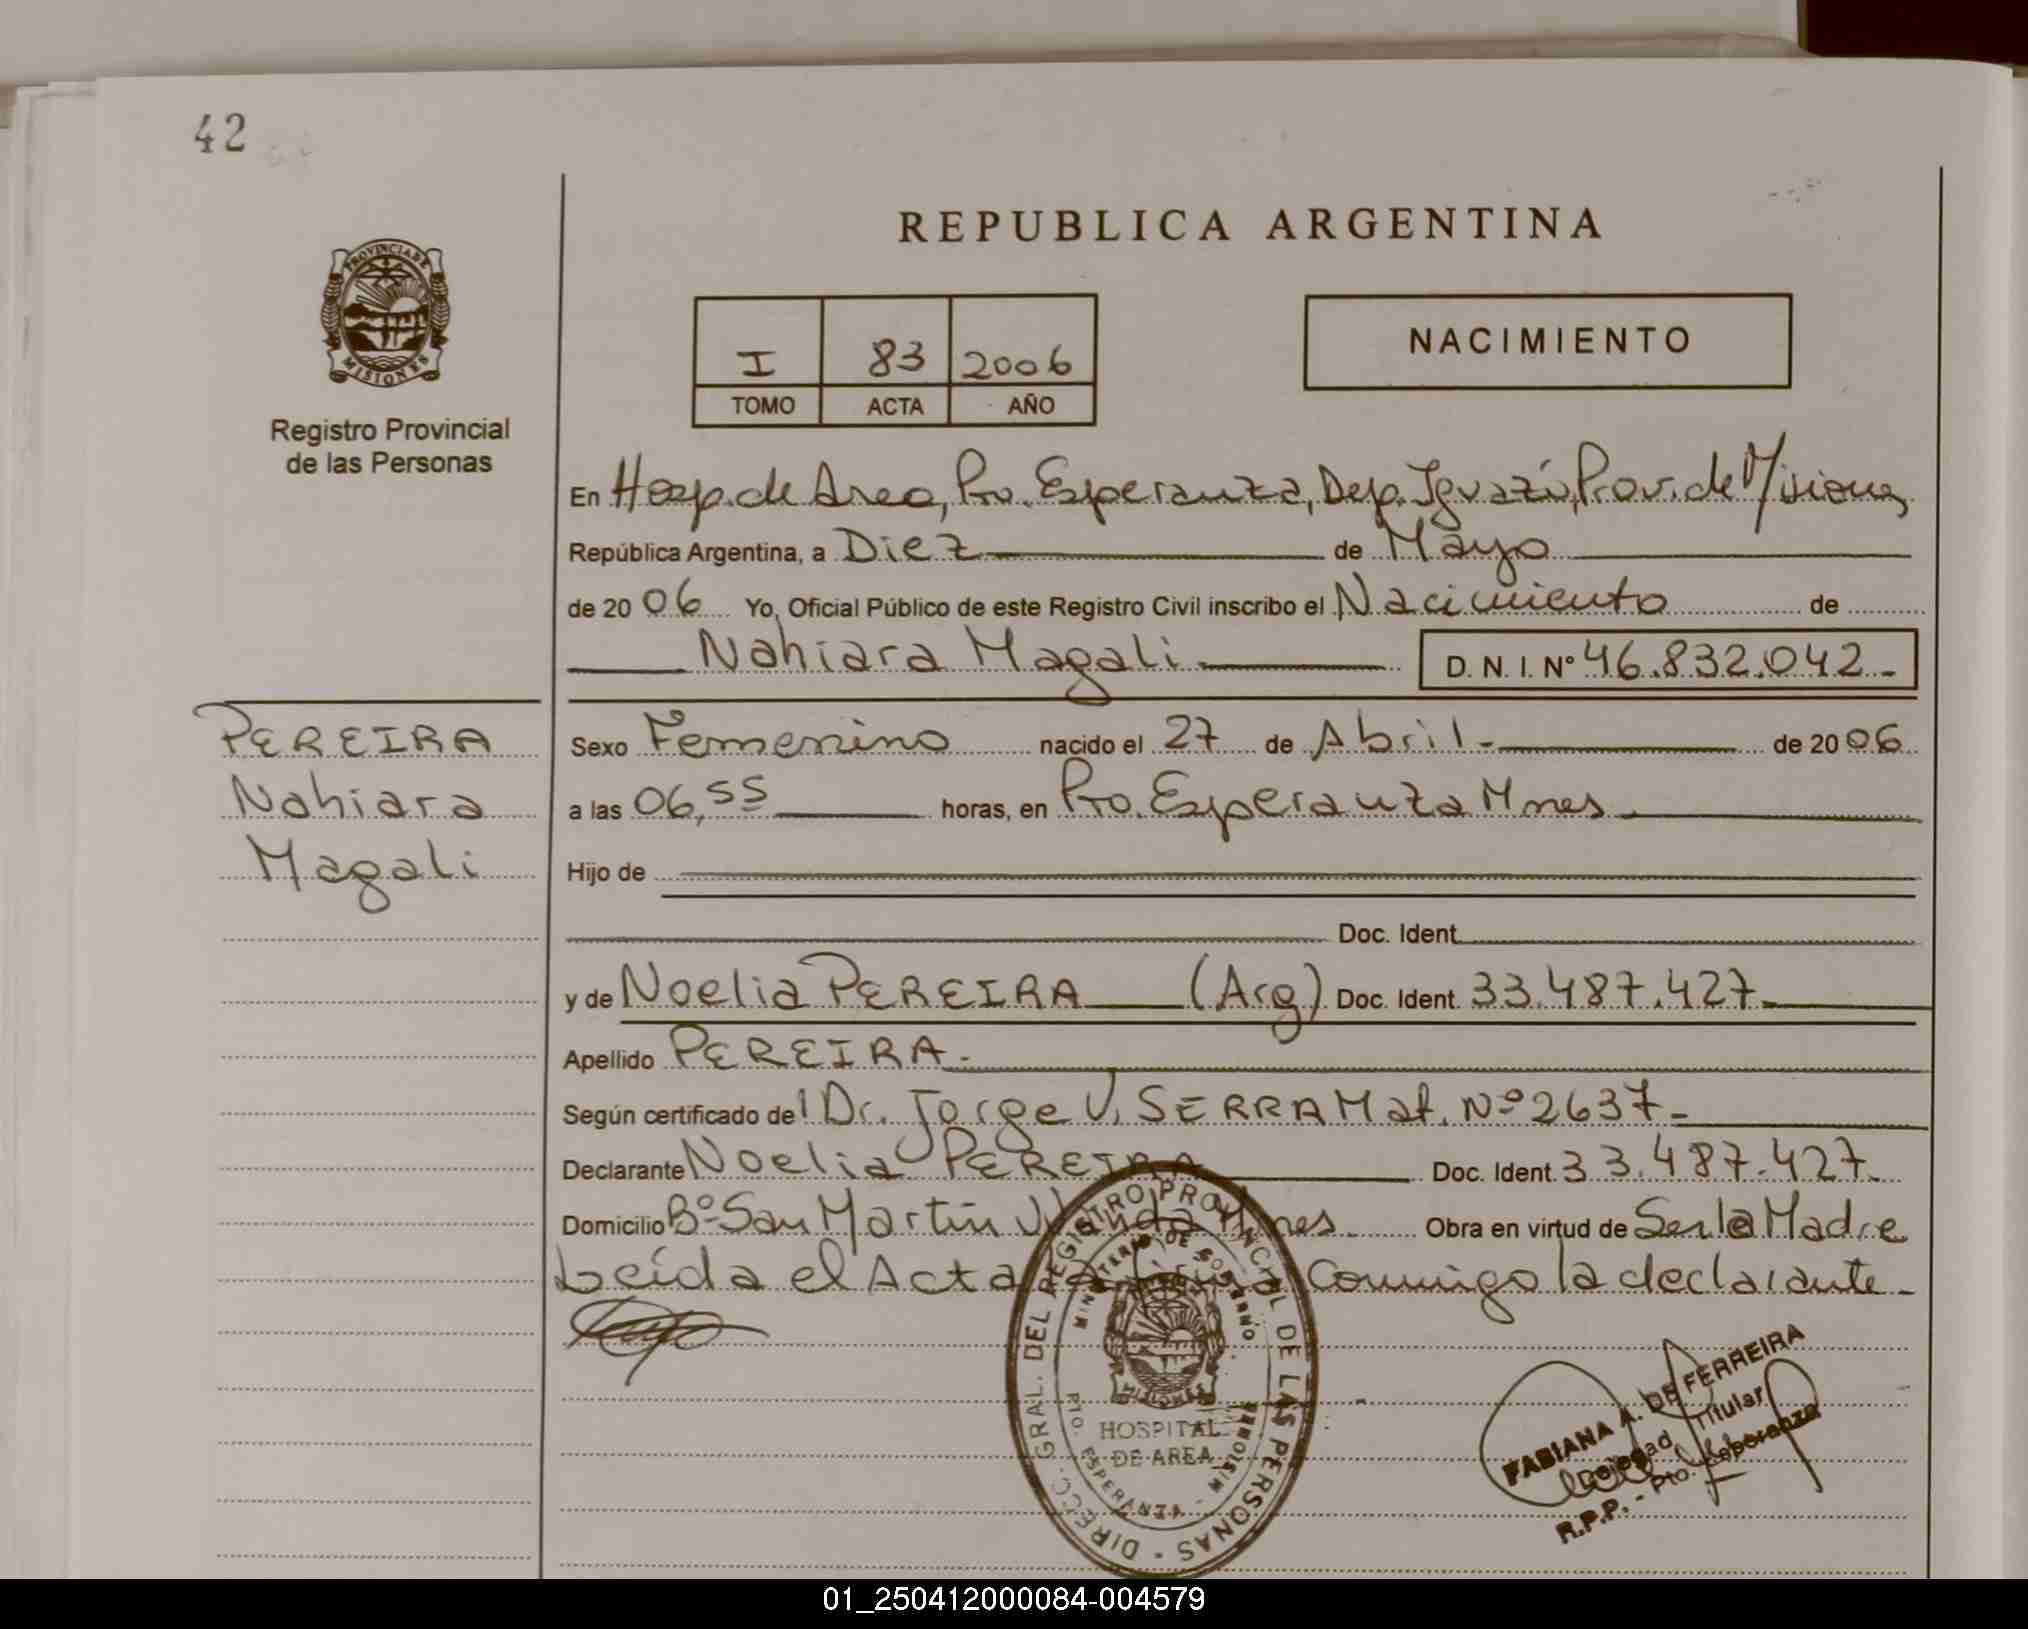 42
REPUBLICA ARGENTINA
PROVINCIA DE
MISIONES
Registro Provincial
de las Personas
I 83 2006
TOMO ACTA AÑO
NACIMIENTO
En Hosp. de Area, Pto. Esperanza, Dep. Iguazú, Prov. de Misiones
República Argentina, a Diez de Mayo
de 20 06 Yo, Oficial Público de este Registro Civil inscribo el Nacimiento de
Nahiara Magali D. N. I. Nº 46.832.042.-
PEREIRA
Nahiara
Magali
Sexo Femenino nacido el 27 de Abril.- de 20 06
a las 06,55 horas, en Pto. Esperanza Mnes
Hijo de
Doc. Ident.
y de Noelia PEREIRA (Arg) Doc. Ident. 33.487.427.-
Apellido PEREIRA.-
Según certificado del Dr. Jorge V. SERRA Mat. Nº 2637.-
Declarante Noelia PEREIRA Doc. Ident. 33.487.427.
Domicilio Bº San Martín Wanda Mnes Obra en virtud de Ser la Madre
Leída el Acta la firma conmigo la declarante.-
DIRECC. GRAL. DEL REGISTRO PROVINCIAL DE LAS PERSONAS
MINISTERIO DE GOBIERNO
HOSPITAL
DE AREA
PTO. ESPERANZA - MISIONES
FABIANA A. DE FERREIRA
Titular
R.P.P. - Pto. Esperanza
01_250412000084-004579